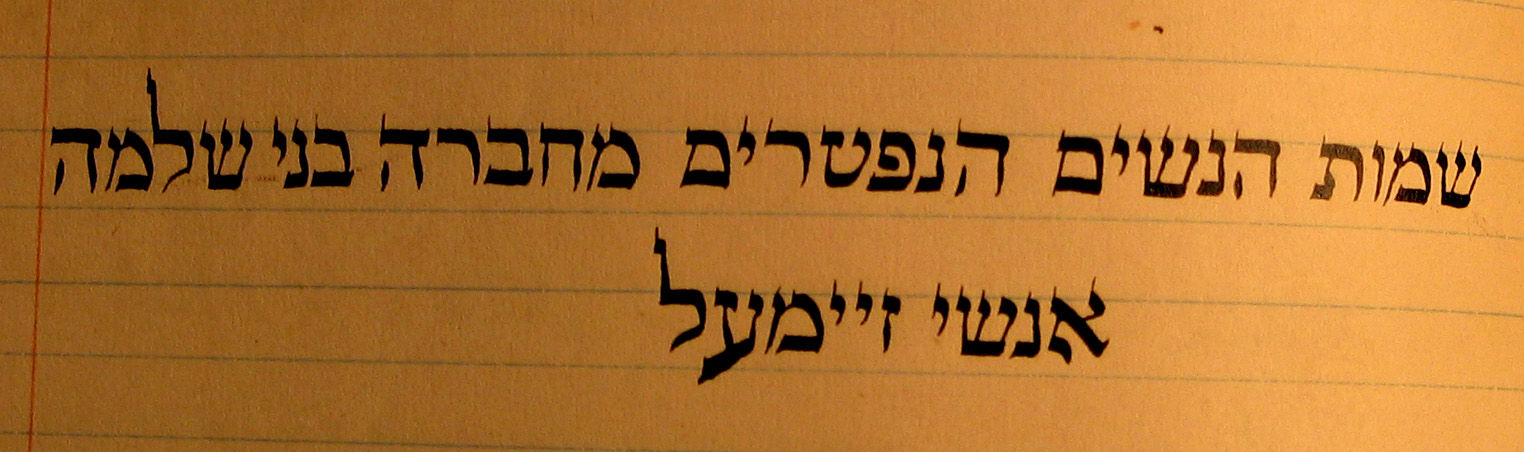 שמות הנשים הנפטרים מחברה בני שלמה
אנשי זיימעל